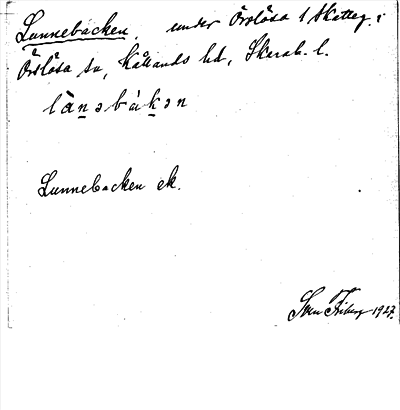 Lunnebacken, under Örslösa 1 skatteg. i
Örslösa sn, Kållands hd, Skarab. l.
lànəbàkən
Lunnebacken ek.
Sven Friberg 1927.